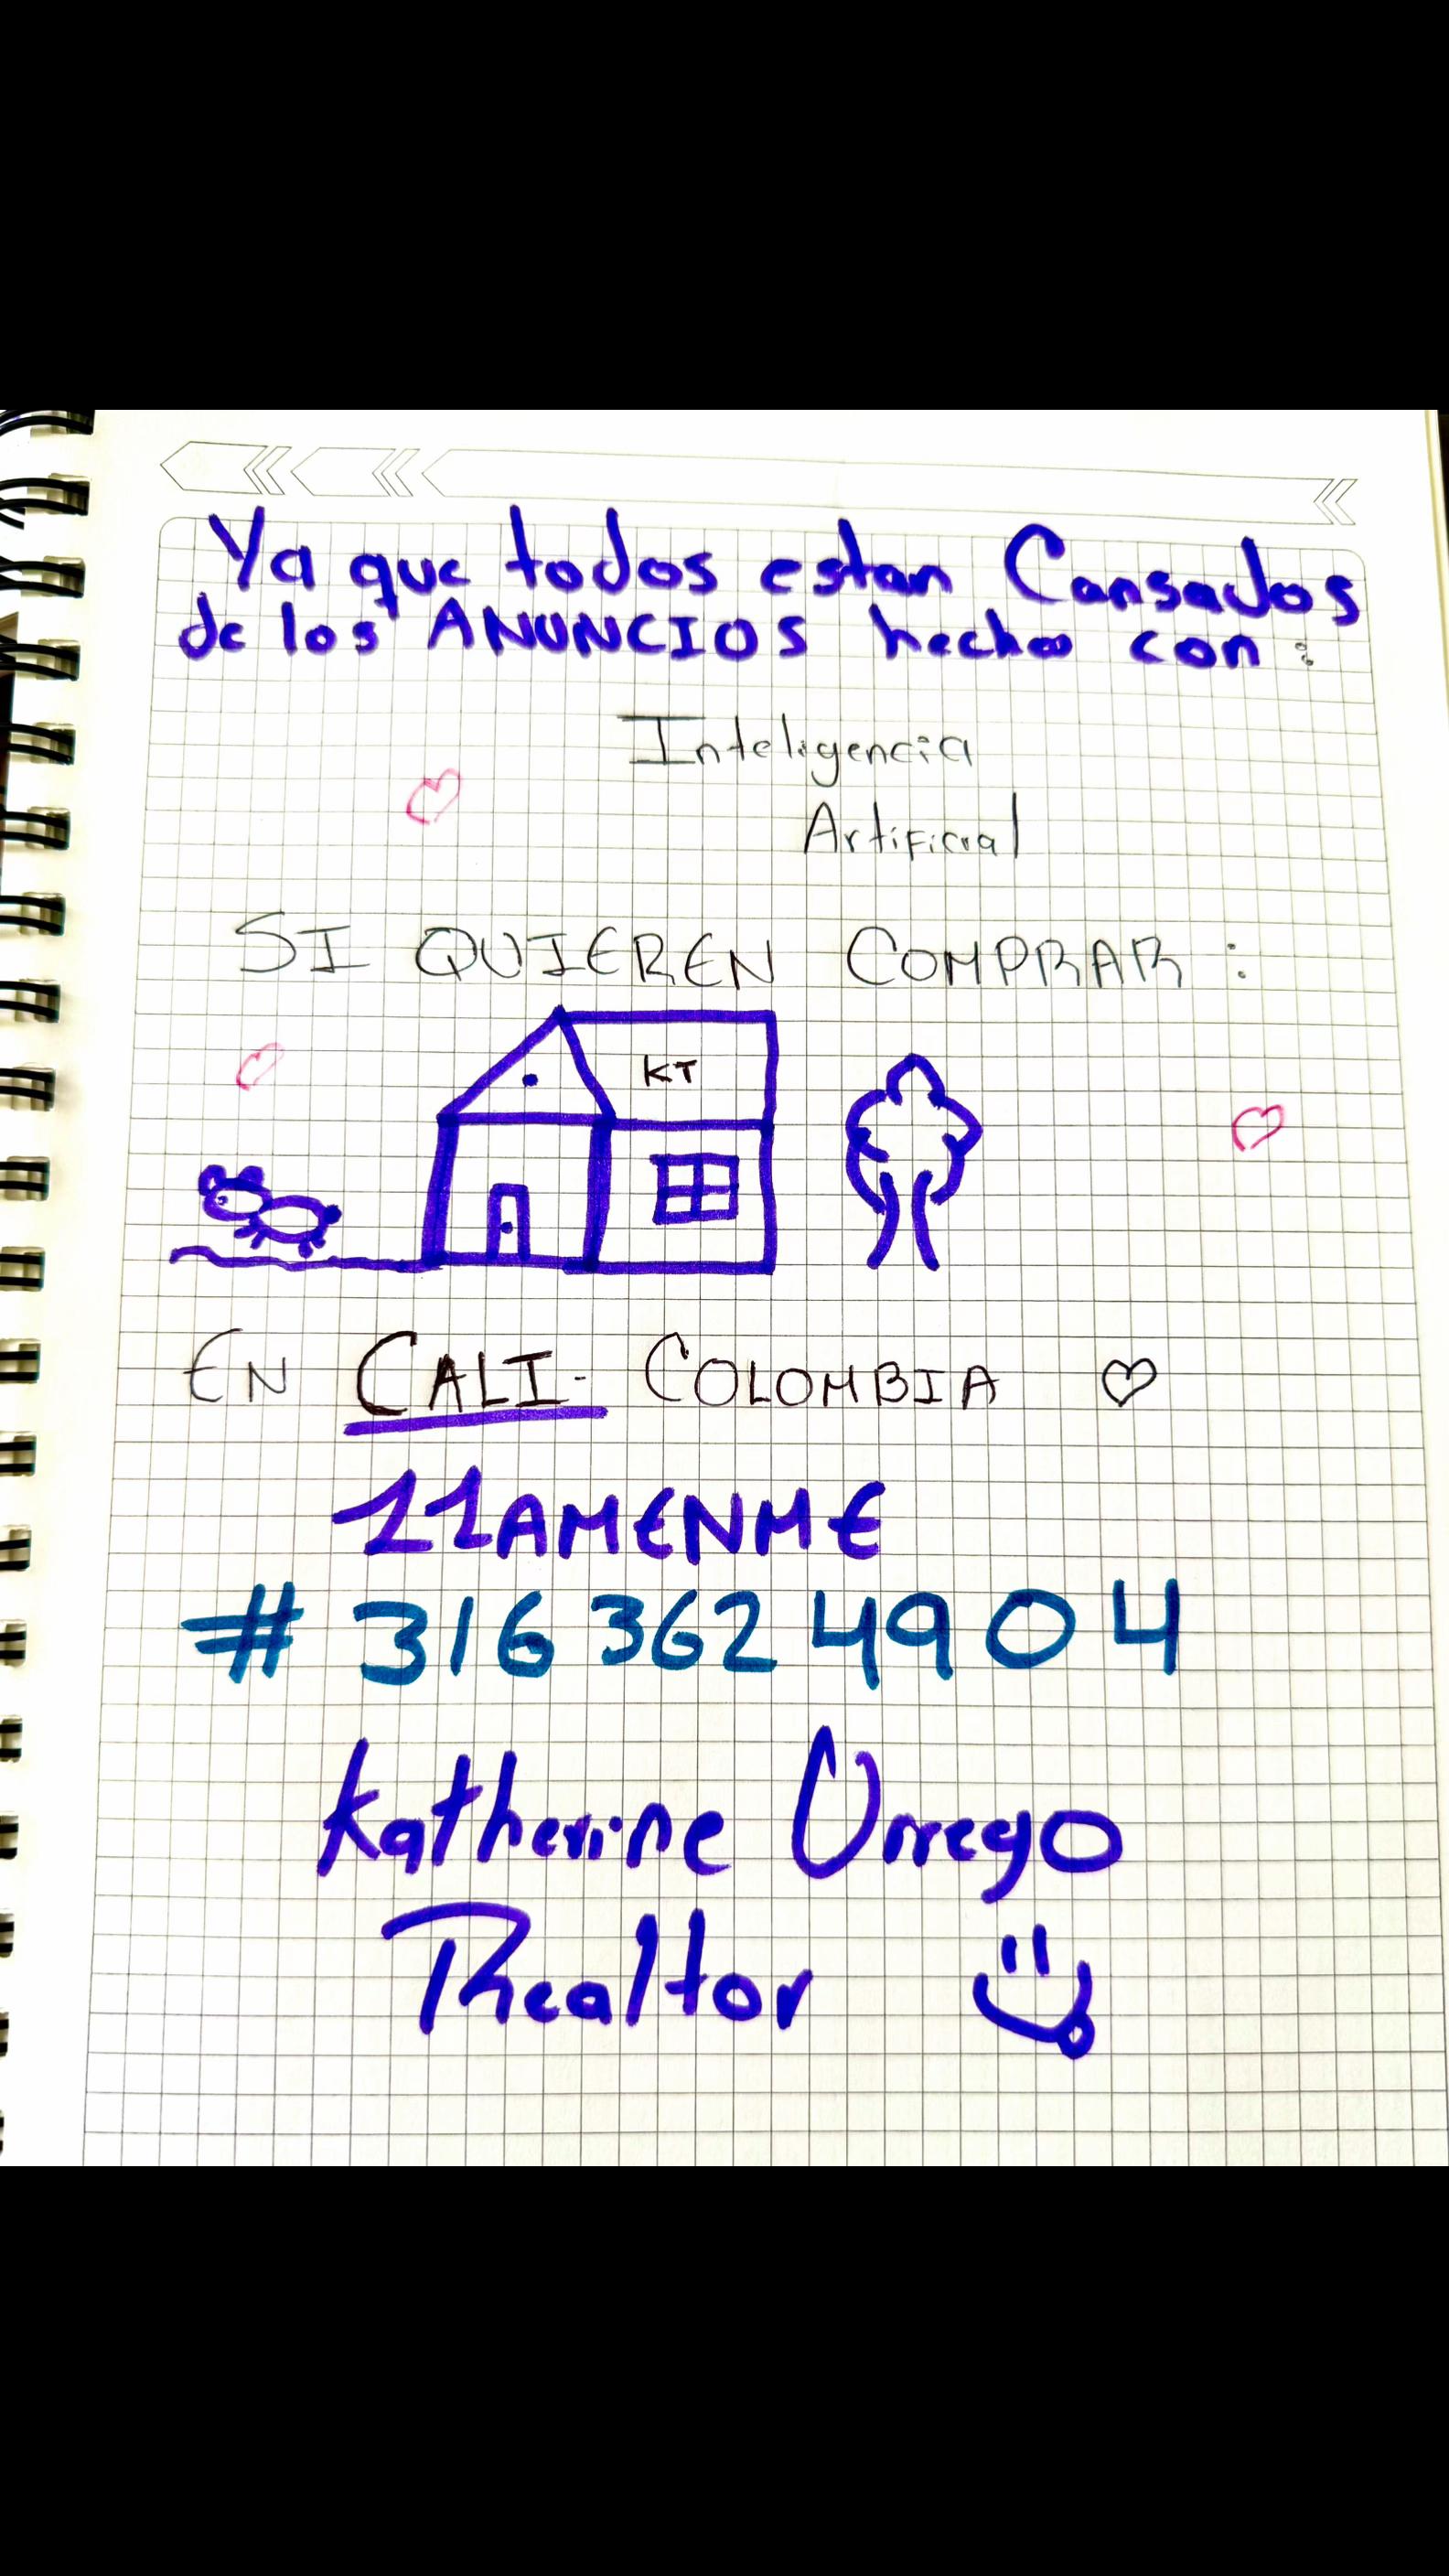 Ya que todos estan Cansados
de los ANUNCIOS hechos con:
Inteligencia
Artificial
SI QUIEREN COMPRAR:
KT
EN CALI- COLOMBIA
LLAMENME
# 316 362 4904
Katherine Orrego
Realtor